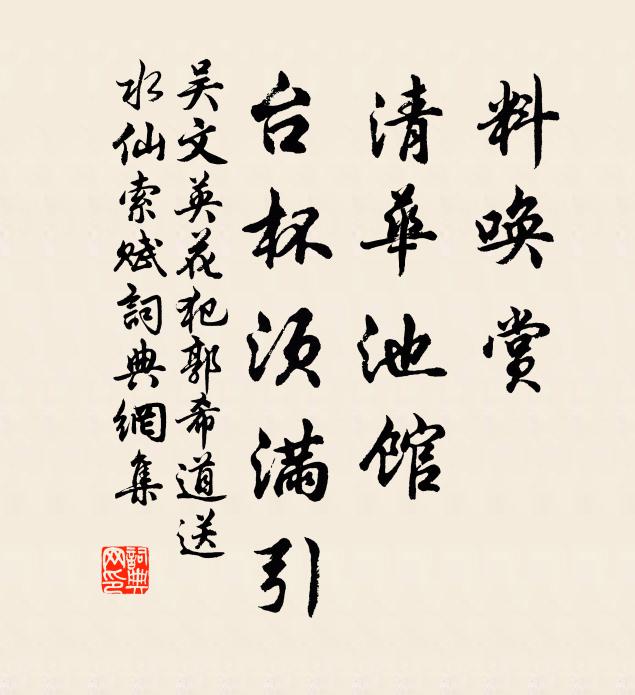 料唤赏
清华池馆
台杯须满引
吴文英花犯郭希道送
水仙索赋词典網集
詞典
网印